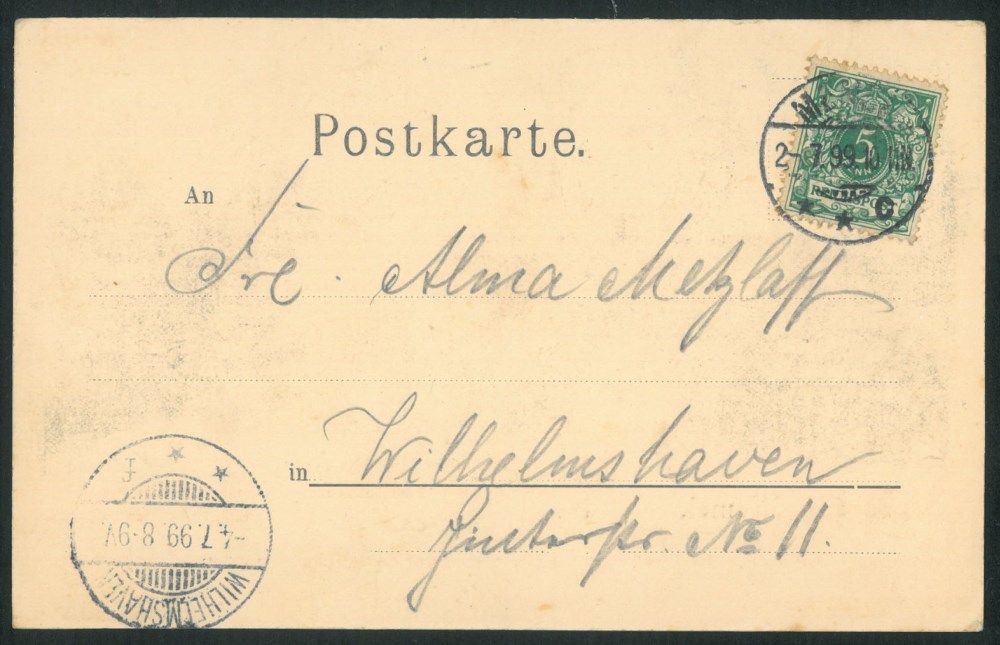 Postkarte.
An
Frl. Alma Metzlaff
in Wilhelmshaven
No 11.
5
2-7.99.10
C
F
-4.7.99.8-9V.
WILHELMSHAVEN